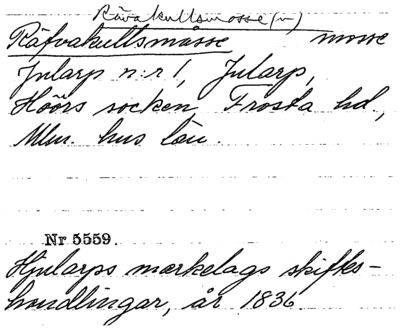 Rävakullsmosse(n)
Räfvakullsmåsse mosse
Jularp n:r 1, Jularp,
Höörs socken, Frosta hd.,
Mlm. hus län.
Nr 5559.
Hjularps markelags skifks-
handlingar, år 1836.